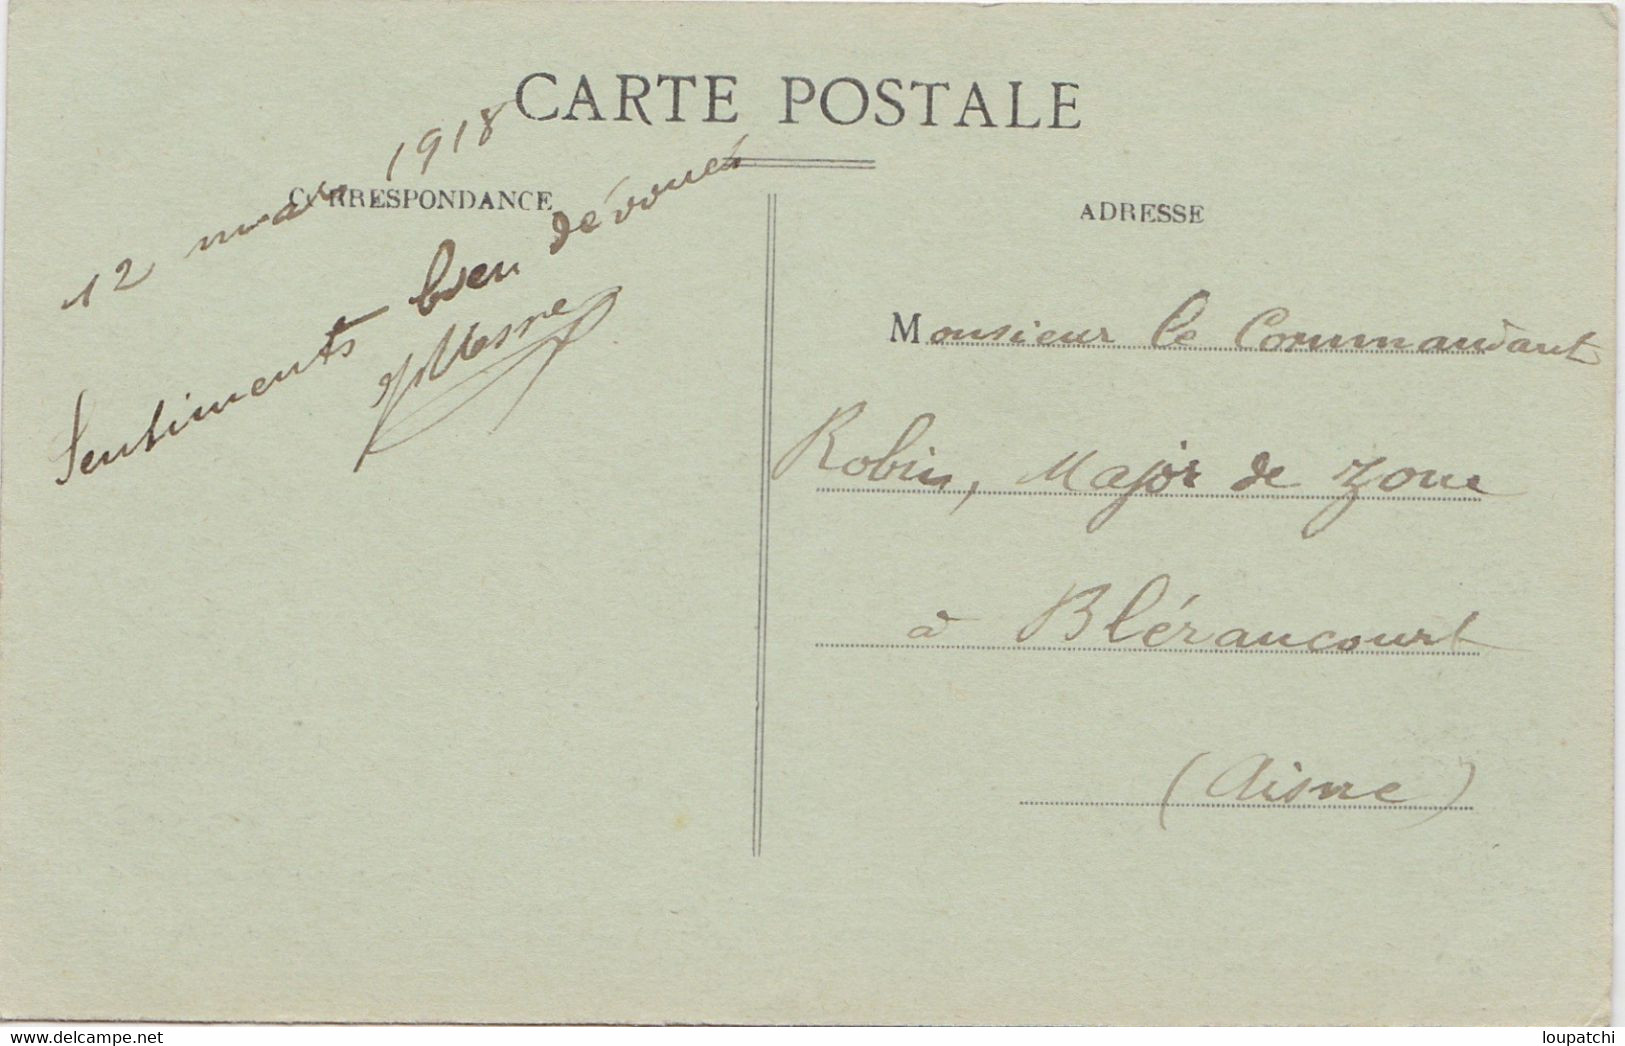 CARTE POSTALE
CORRESPONDANCE
12 mars 1918
Sentiments bien dévoués
ADRESSE
Monsieur le Commandant
Robin, Major de zone
à Blérancourt
(Aisne)
www.delcampe.net
loupatchi